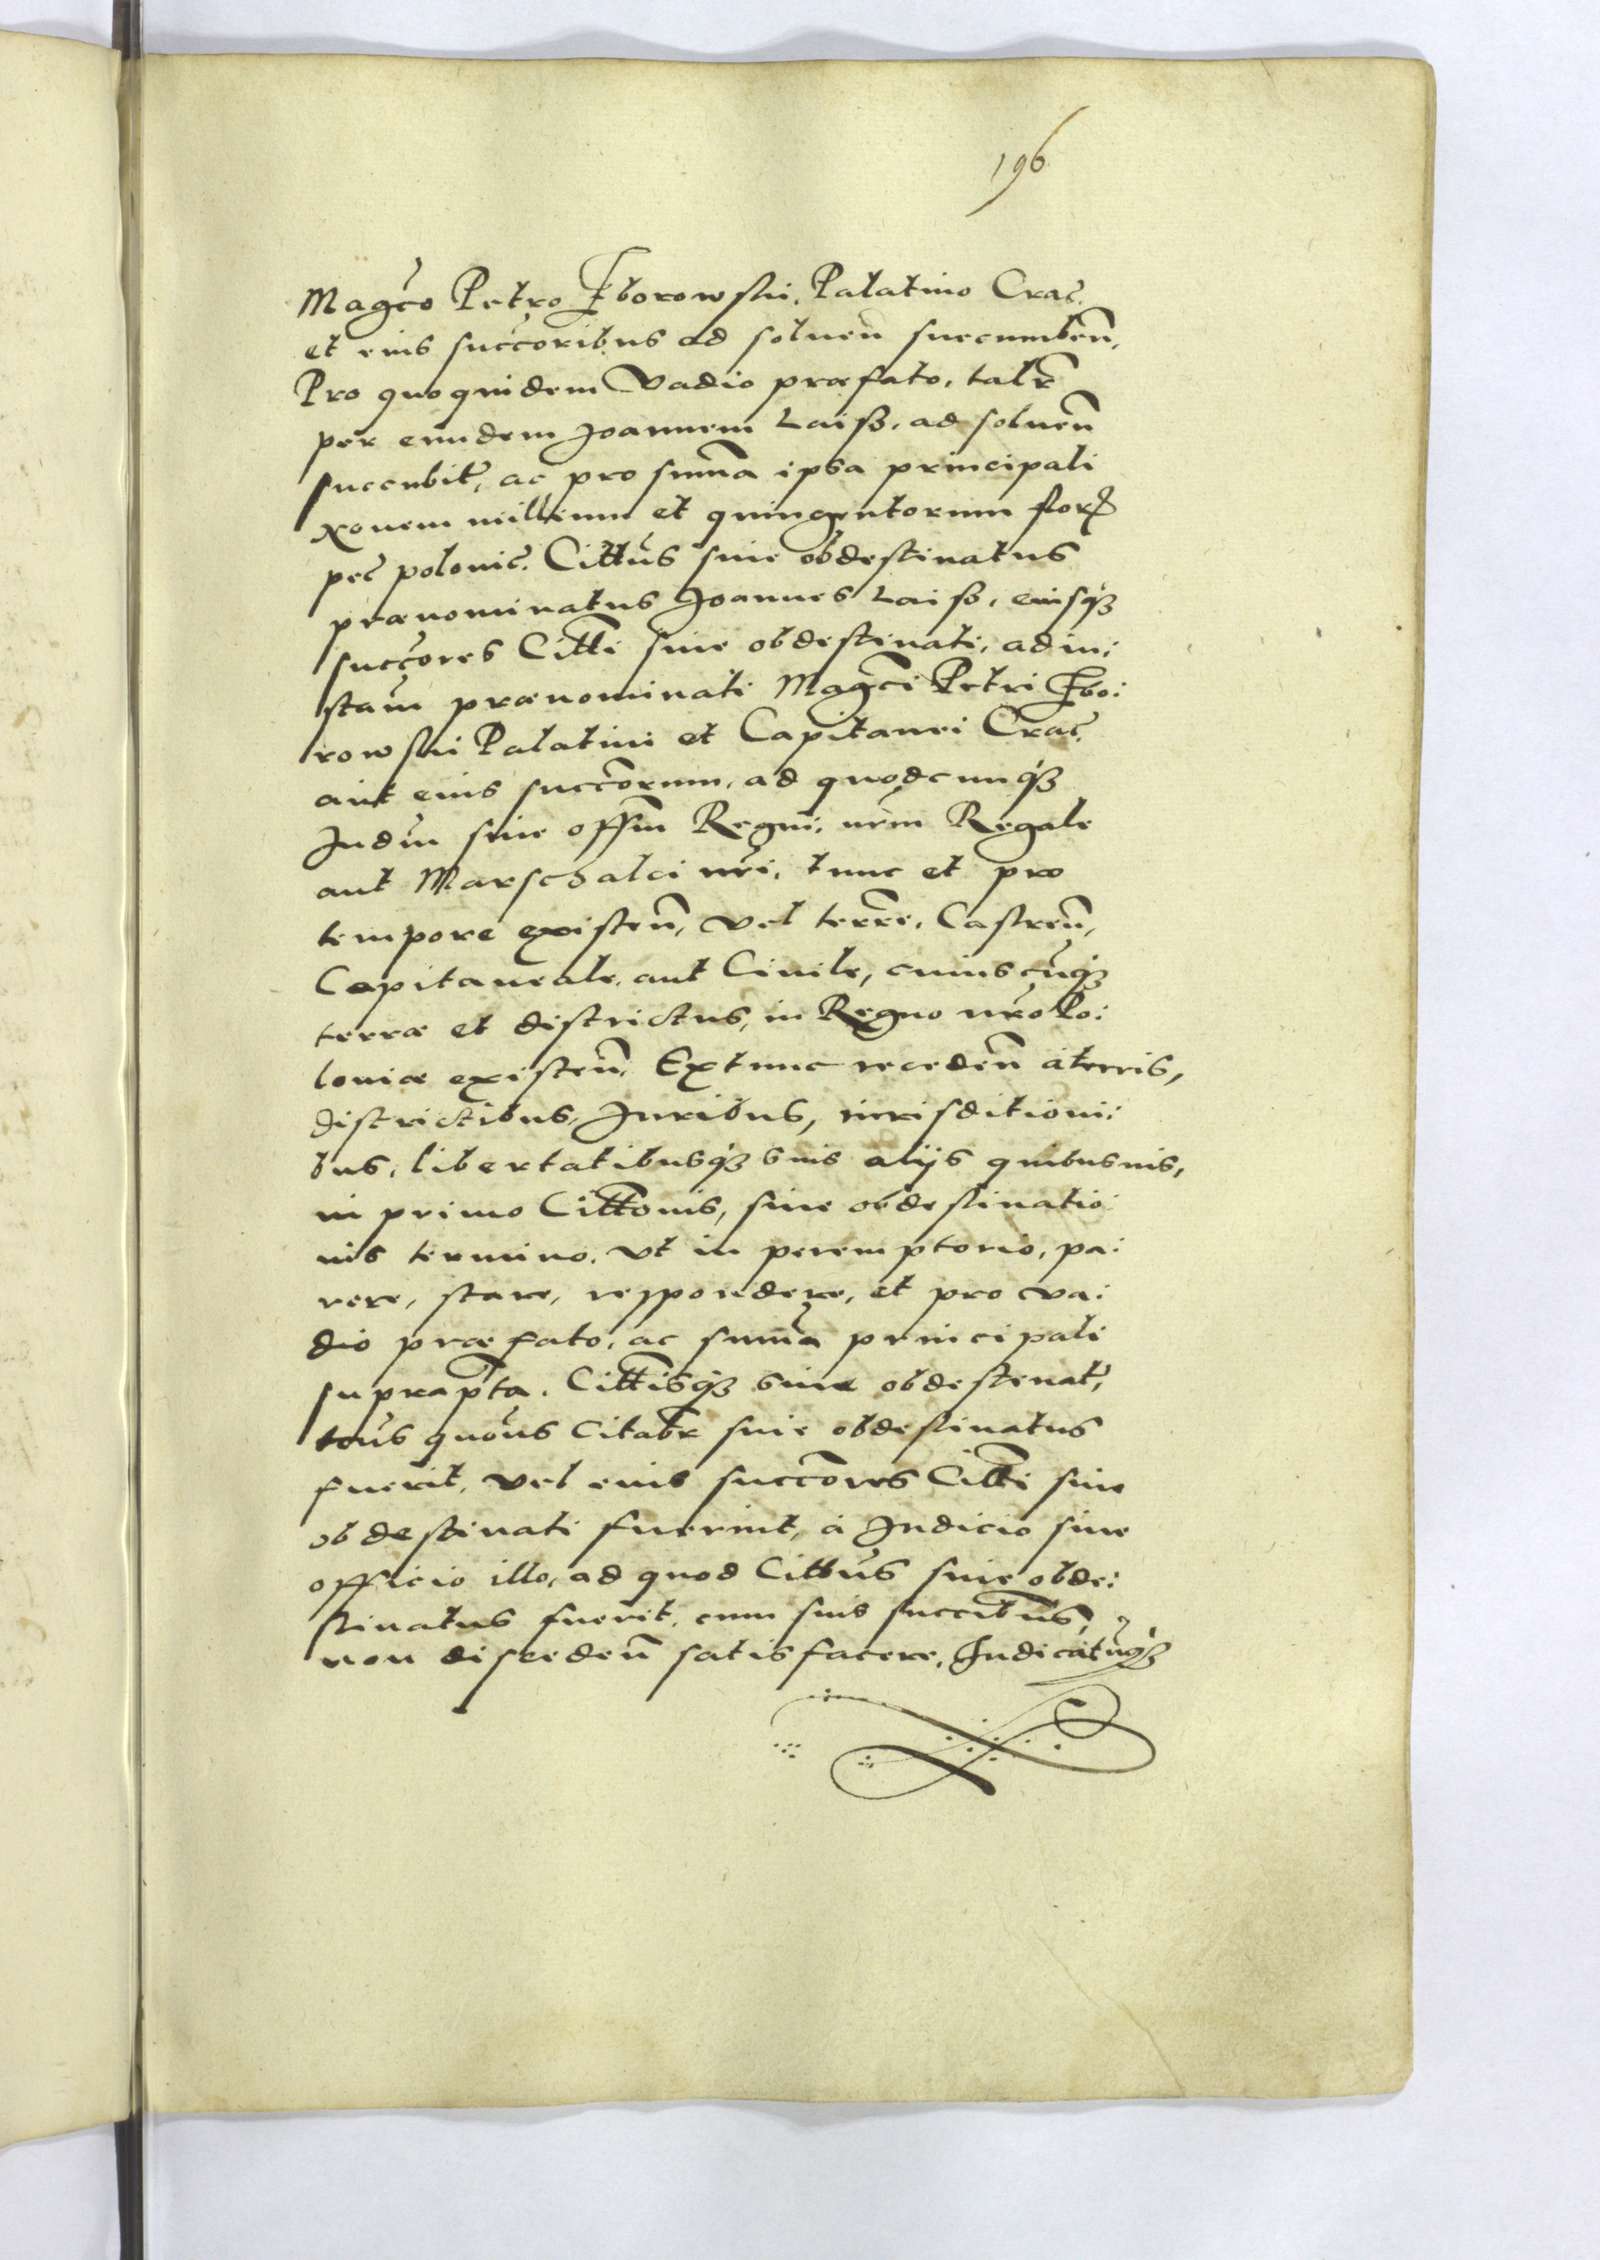 196
Mag̃co Petro Zborowski, Palatino Crac̃.
et eius succ̃oribus ad soluen̄ succumben̄,
Pro quoquidem Vadio præfato, talr̃
per eundem Joannem Laisz, ad soluen̄
succubit̃, ac pro sum̃a ipsa principali
Nouem millium et quingentorum flor̃
pec̃ polonic̃. Citt̃us siue obdestinatus
prænominatus Joannes Laisz, eiusq̃
succ̃ores Citt̃i siue obdestinati, ad in:
stam̃ prænominati Mag̃ci Petri Zbo:
rowski Palatini et Capitanei Crac̃.
aut eius succ̃orum, ad quodcunq̃
Judm̃ siue offm̃ Regni, nr̃m Regale
aut Marschalci nr̃i, tunc et pro
tempore existen̄, vel terr̃e, Castren̄,
Capitaneale, aut Ciuile, cuiuscũq̃
terræ et districtus, in Regno nr̃o Po:
loniæ existen̄. Extunc receden̄ à terris,
districtibus, Juribus, iurisditioni:
bus, libertatibusq̃ suis alijs quibusuis,
in primo Citt̃onis, siue obdestinatio:
nis termino, vt in peremptorio, pa:
rere, stare, respondere, et pro va:
dio præfato, ac sum̃a principali
suprap̃ta. Citt̃isq̃ siue obdestinat̃,
tous quõus Citatr̃ siue obdestinatus
fuerit, vel eius succ̃ores Citt̃i siue
obdestinati fuerint, à Judicio siue
officio illo, ad quod Citt̃us siue obde:
stinatus fuerit, cum suis succ̃ibus,
non disceden̄ satisfacere, Judicatũq̃